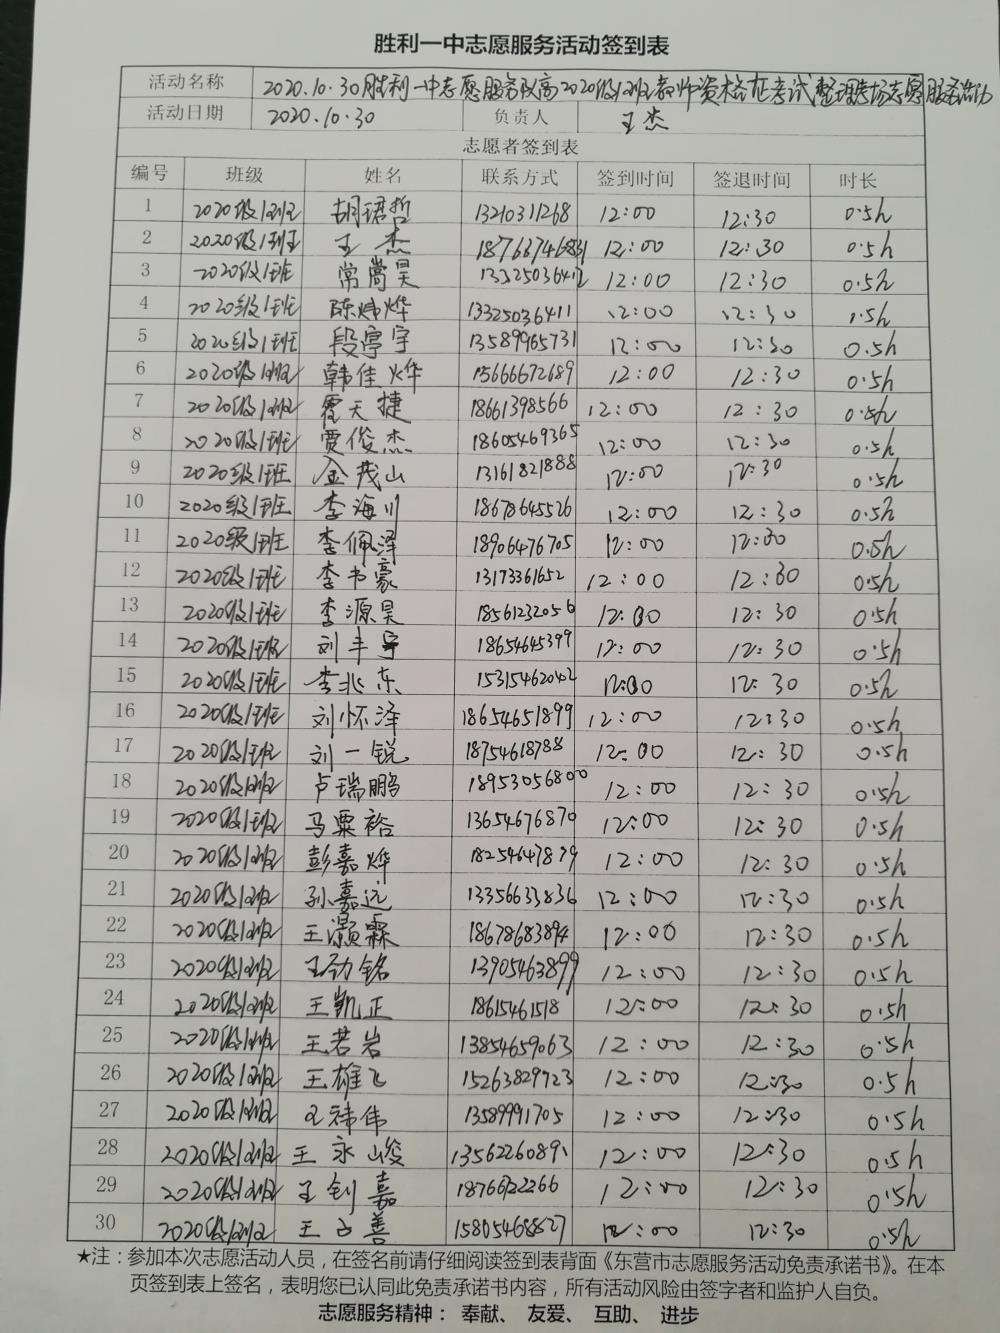 胜利一中志愿服务活动签到表
活动名称 2020.10.30胜利一中志愿服务队高2020级1班教师资格证考试整理考场志愿服务活动
活动日期 2020.10.30 负责人 王杰
志愿者签到表
编号 班级 姓名 联系方式 签到时间 签退时间 时长
1 2020级1班 胡珺哲 13210311268 12:00 12:30 0.5h
2 2020级1班 王杰 12:00 12:30 0.5h
3 2020级1班 常嵩昊 12:00 12:30 0.5h
4 2020级1班 陈炜烨 13325036411 12:00 12:30 1.5h
5 2020级1班 段亭宇 13589965731 12:00 12:30 0.5h
6 2020级1班 韩佳烨 15666672689 12:00 12:30 0.5h
7 2020级1班 霍天捷 18661398566 12:00 12:30 0.5h
8 2020级1班 贾俊杰 18605469365 12:00 12:30 0.5h
9 2020级1班 金茂山 13161821888 12:00 12:30 0.5h
10 2020级1班 李海川 18678645526 12:00 12:30 0.5h
11 2020级1班 李佩泽 18906476705 12:00 12:30 0.5h
12 2020级1班 李书豪 13173361652 12:00 12:30 0.5h
13 2020级1班 李源昊 18561232056 12:00 12:30 0.5h
14 2020级1班 刘丰宇 18654645399 12:00 12:30 0.5h
15 2020级1班 李兆东 15315462042 12:00 12:30 0.5h
16 2020级1班 刘怀泽 18654651899 12:00 12:30 0.5h
17 2020级1班 刘一锐 18754618788 12:00 12:30 0.5h
18 2020级1班 卢瑞鹏 18953056800 12:00 12:30 0.5h
19 2020级1班 马粟裕 13654676870 12:00 12:30 0.5h
20 2020级1班 彭嘉烨 18254647879 12:00 12:30 0.5h
21 2020级1班 孙嘉远 13356633836 12:00 12:30 0.5h
22 2020级1班 王灏霖 18678683894 12:00 12:30 0.5h
23 2020级1班 王劲铭 13905463899 12:00 12:30 0.5h
24 2020级1班 王凯正 18615461518 12:00 12:30 0.5h
25 2020级1班 王若岩 13854659063 12:00 12:30 0.5h
26 2020级1班 王雄飞 15263829723 12:00 12:30 0.5h
27 2020级1班 王祎伟 13589991705 12:00 12:30 0.5h
28 2020级1班 王永峻 13562260891 12:00 12:30 0.5h
29 2020级1班 王钊嘉 18766122266 12:00 12:30 0.5h
30 2020级1班 王善 15805468527 12:00 12:30 0.5h
★注：参加本次志愿活动人员，在签名前请仔细阅读签到表背面《东营市志愿服务活动免责承诺书》。在本
页签到表上签名，表明您已认同此免责承诺书内容，所有活动风险由签字者和监护人自负。
志愿服务精神： 奉献、 友爱、 互助、 进步